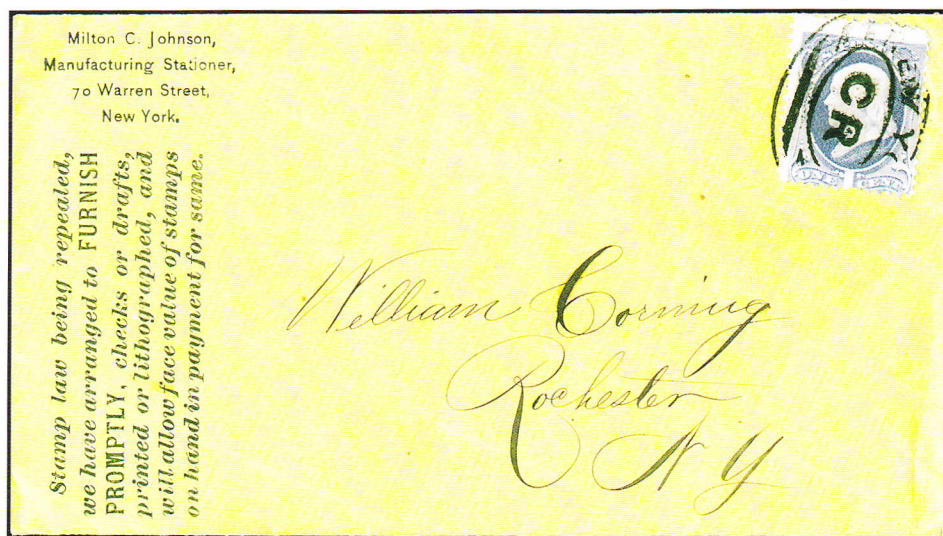 Milton C. Johnson,
Manufacturing Stationer,
70 Warren Street,
New York.
Stamp law being repealed,
we have arranged to FURNISH
PROMPTLY, checks or drafts,
printed or lithographed, and
will allow face value of stamps
on hand in payment for same.
CR
William Corning
Rochester
N Y